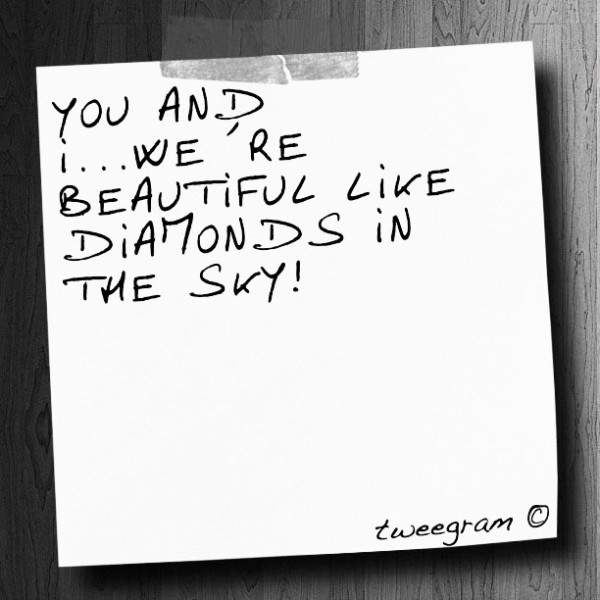 YOU AND
i...WE'RE
BEAUTiFUL LiKE
DiAMONDS iN
THE SKY!
tweegram ©